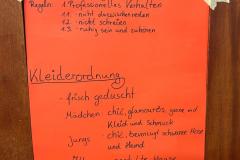 Regeln: 1. Professionelles Verhalten
1.1. nicht dazwischenreden
1.2. nicht schreien
1.3. ruhig sein und zuhören
Kleiderordnung
- frisch geduscht
Mädchen - chic, glamourös, gerne mit
Kleid und Schmuck
Jungs - chic, bevorzugt schwarze Hose
und Hemd